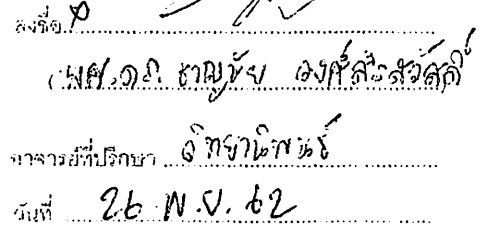 ลงชื่อ
(ผศ.ดร. ธาญชัย วงศ์สิริสวัสดิ์
อาจารย์ที่ปรึกษา วิทยานิพนธ์
วันที่ 26 พ.ย. 62